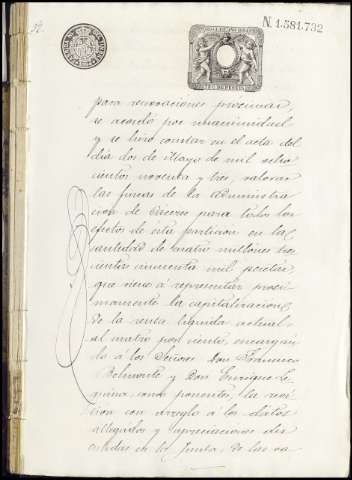 N. 1.581.732
para renovaciones próximas,
se acordó por unanimidad
y se hizo constar en el acta del
día dos de Mayo de mil ocho
cientos noventa y tres, valorar
las fincas de la administra
cion de Cáceres para todos los
efectos de esta particion en la
cantidad de cuatro millones tres
cientas cincuenta mil pesetas,
que viene á representar proxi
mamente la capitalizacion
de la renta líquida actual
al cuatro por ciento, encargán
dose á los Señores Don Francisco
Belmonte y Don Enrique Le
como ponentes, la
cion con arreglo á los datos
allegados y apreciaciones des
en la Junta, de las va